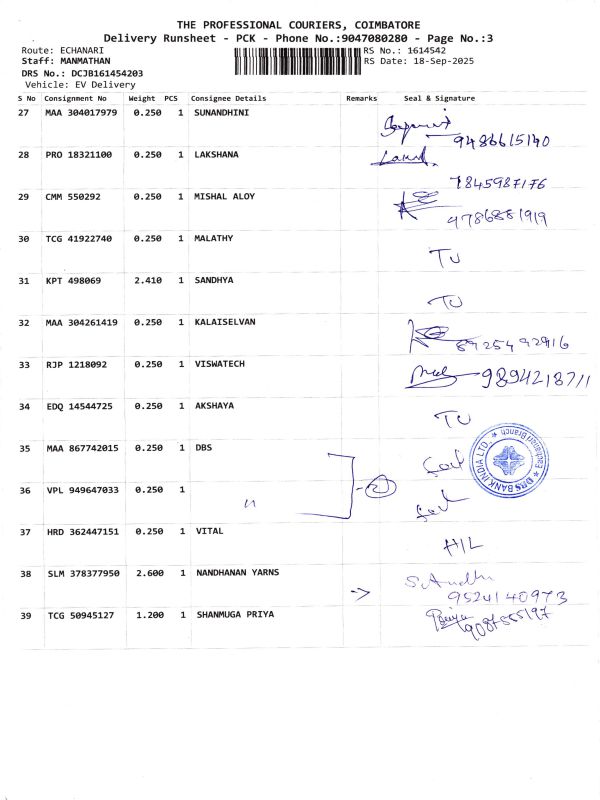 THE PROFESSIONAL COURIERS, COIMBATORE
Delivery Runsheet - PCK - Phone No.:9047080280 - Page No.:3
Route: ECHANARI RS No.: 1614542
Staff: MANMATHAN RS Date: 18-Sep-2025
DRS No.: DCJB161454203
Vehicle: EV Delivery
S No Consignment No Weight PCS Consignee Details Remarks Seal & Signature
27 MAA 304017979 0.250 1 SUNANDHINI
9486615140
28 PRO 18321100 0.250 1 LAKSHANA
7845987176
29 CMM 550292 0.250 1 MISHAL ALOY
9786881919
30 TCG 41922740 0.250 1 MALATHY
TU
31 KPT 498069 2.410 1 SANDHYA
TU
32 MAA 304261419 0.250 1 KALAISELVAN
8925492916
33 RJP 1218092 0.250 1 VISWATECH
9894218711
34 EDQ 14544725 0.250 1 AKSHAYA
TU
35 MAA 867742015 0.250 1 DBS
DBS BANK INDIA LTD.
Echanari Branch
36 VPL 949647033 0.250 1 〃
2
37 HRD 362447151 0.250 1 VITAL
H/L
38 SLM 378377950 2.600 1 NANDHANAN YARNS
9524140973
39 TCG 50945127 1.200 1 SHANMUGA PRIYA
Priya